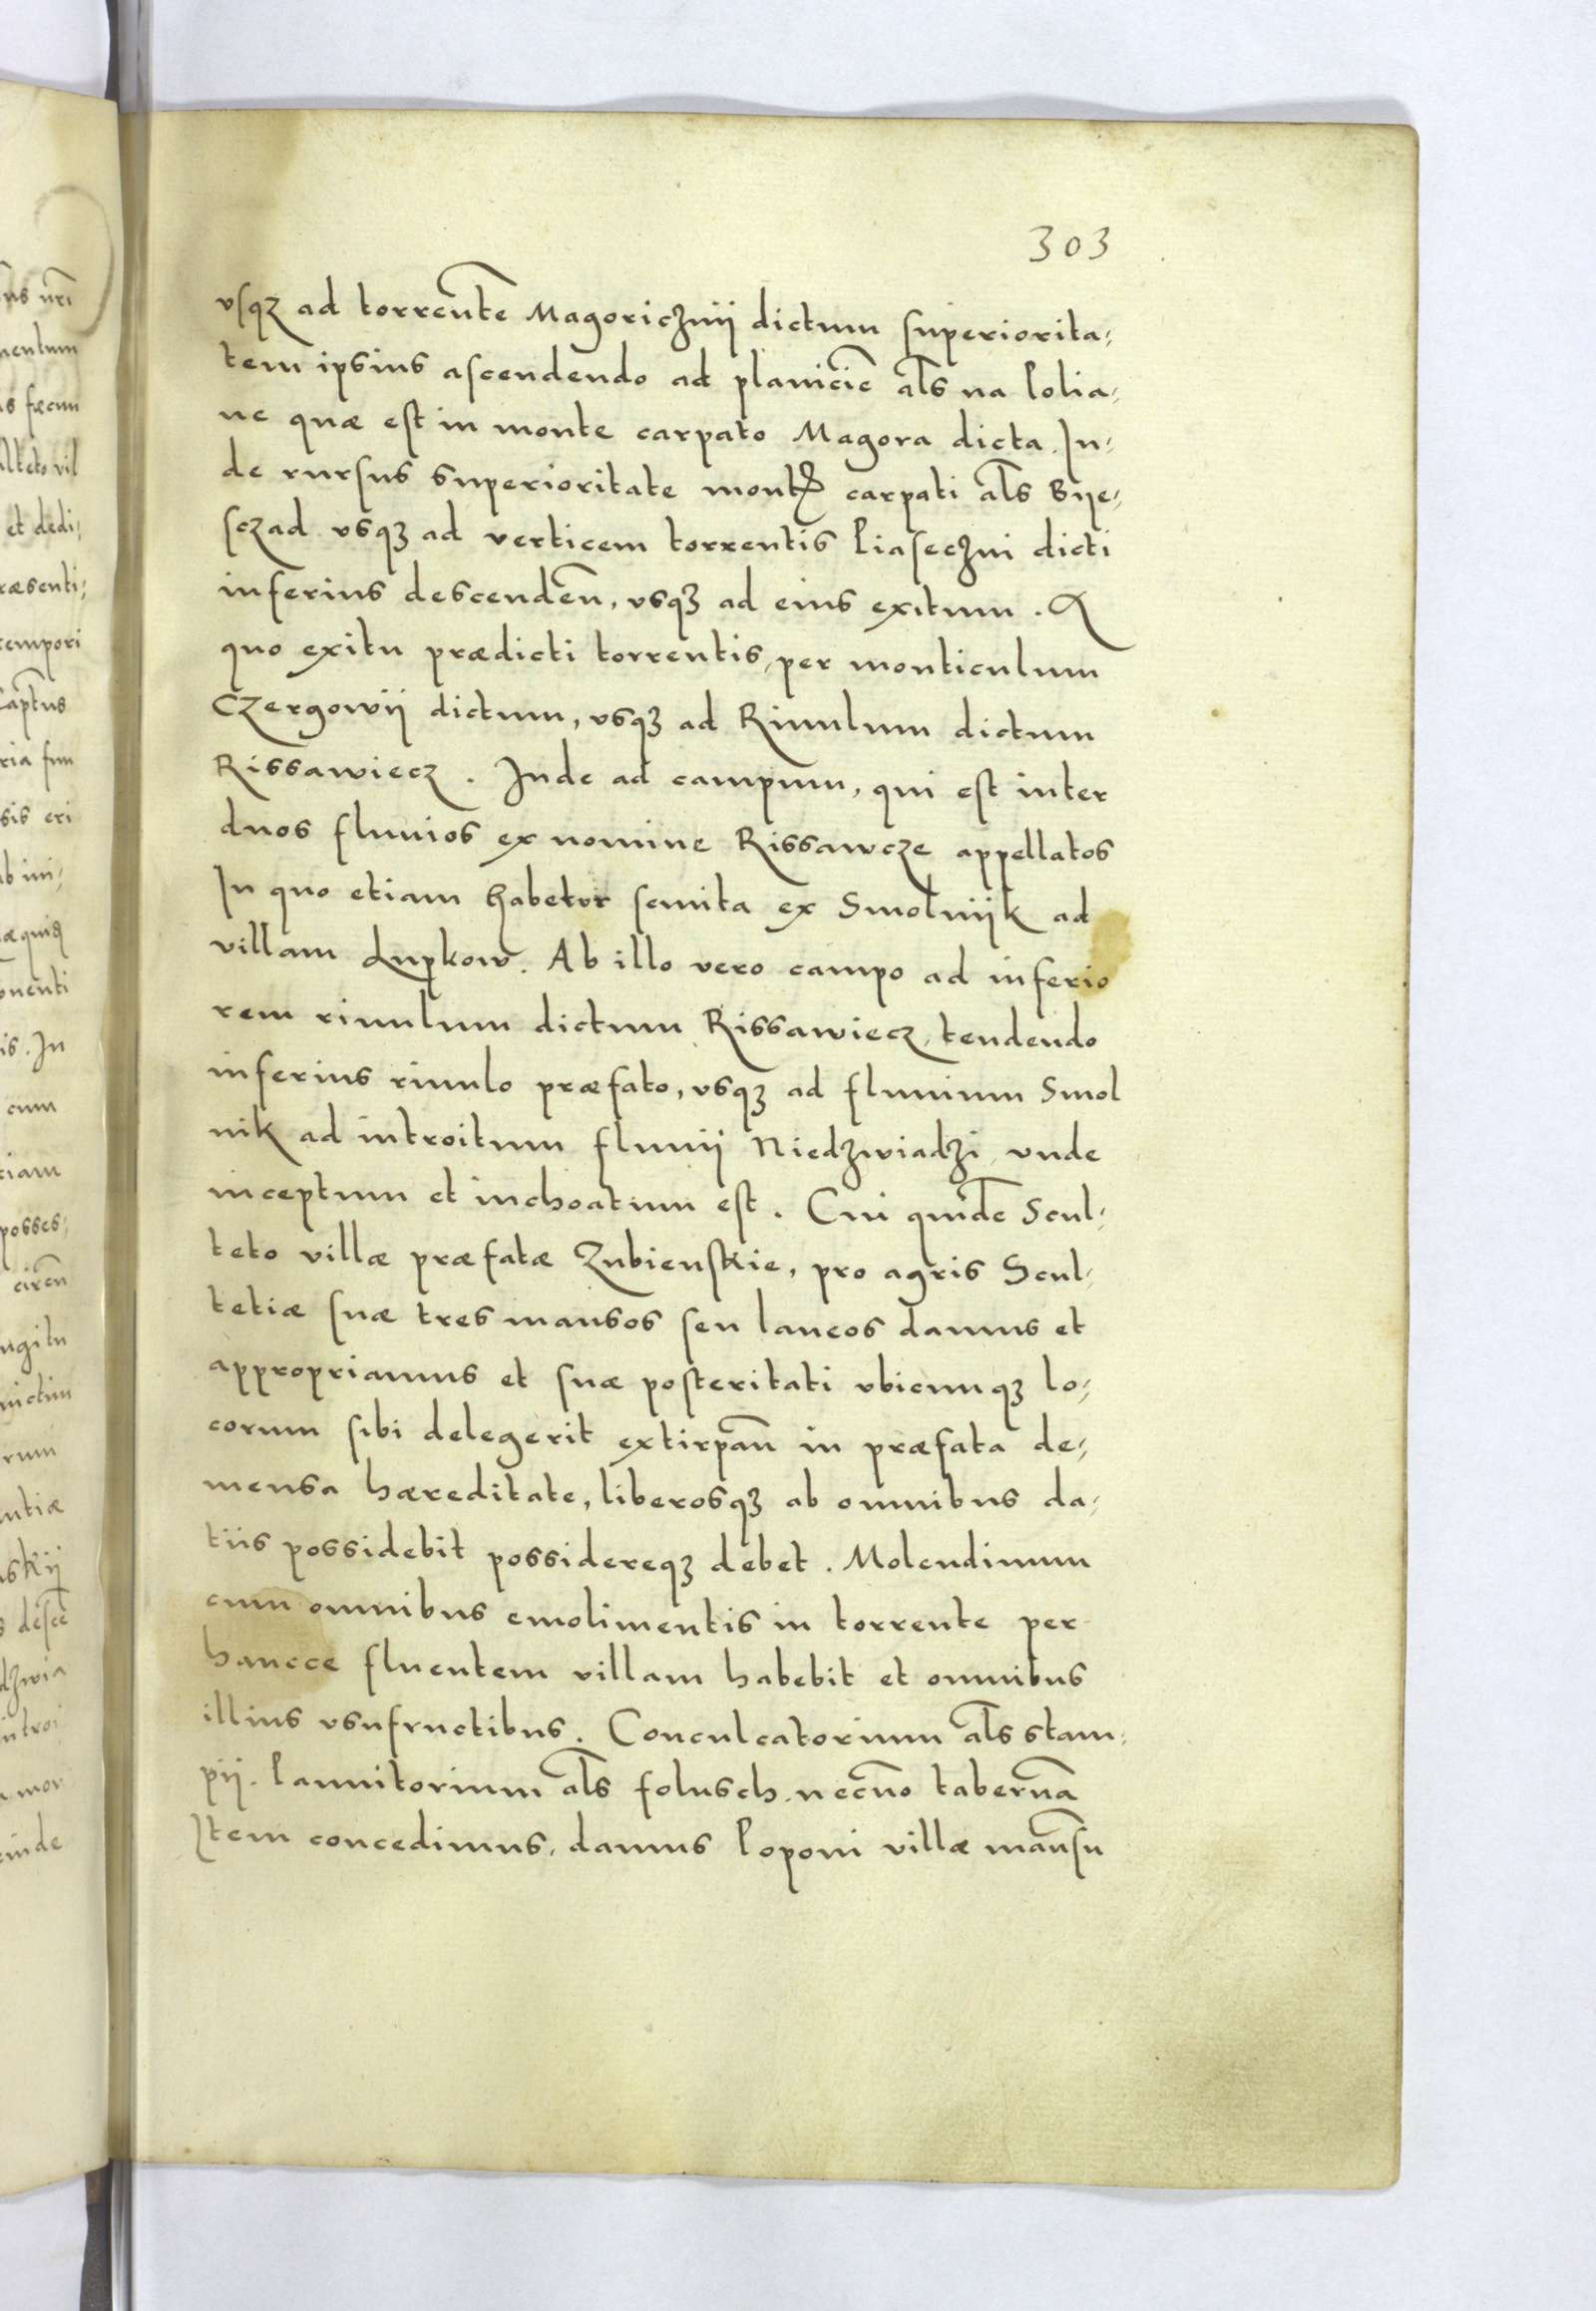 303
vsqꝫ ad torrente͂ Magoricznÿ dictum superiorita⸗
tem ipsius ascendendo ad planicie͂ al͂s na Polia⸗
ne quæ est in monte carpato Magora dicta. In⸗
de rursus superioritate montꝭ carpati al͂s Bye⸗
sczad vsqꝫ ad verticem torrentis Piaseczni dicti
inferius descenden͂, vsqꝫ ad eius exitum. A
quo exitu prædicti torrentis, per monticulum
Czergowÿ dictum, vsqꝫ ad Riuulum dictum
Rissawiecz. Inde ad campum, qui est inter
duos fluuios ex nomine Rissawcze appellatos
In quo etiam habetur semita ex Smolnÿk ad
villam Lupkow. Ab illo vero campo ad inferio
rem riuulum dictum Rissawiecz, tendendo
inferius riuulo præfato, vsqꝫ ad fluuium Smol
nik ad introitum fluuÿ Niedzwiadzi, vnde
inceptum et inchoatum est. Cui quide͂ Scul⸗
teto villæ præfatæ Zubienskie, pro agris Scul⸗
tetiæ suæ tres mansos seu laneos damus et
appropriamus et suæ posteritati vbicumqꝫ lo⸗
corum sibi delegerit extirpan͂ in præfata de⸗
mensa hæreditate, liberosqꝫ ab omnibus da⸗
tiis possidebit possidereqꝫ debet. Molendinum
cum omnibus emolimentis in torrente per
hancce fluentem villam habebit et omnibus
illius vsufructibus. Conculcatorium al͂s stam⸗
pÿ. Pannitorium al͂s folusch. necno͂ taberna͂
Item concedimus, damus Poponi villæ mansu͂